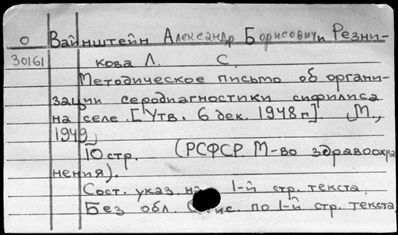 О Вайнштейн Александр Борисович и Резни-
30161 кова Л. С.
Методическое письмо об органи-
зации серодиагностики сифилиса
на селе. [Утв. 6 дек. 1948 г.] М.,
1949
10 стр. (РСФСР. М-во здравоохра
нения).
Сост. указ. на 1-й стр. текста.
Без обл. по 1-й стр. текста.